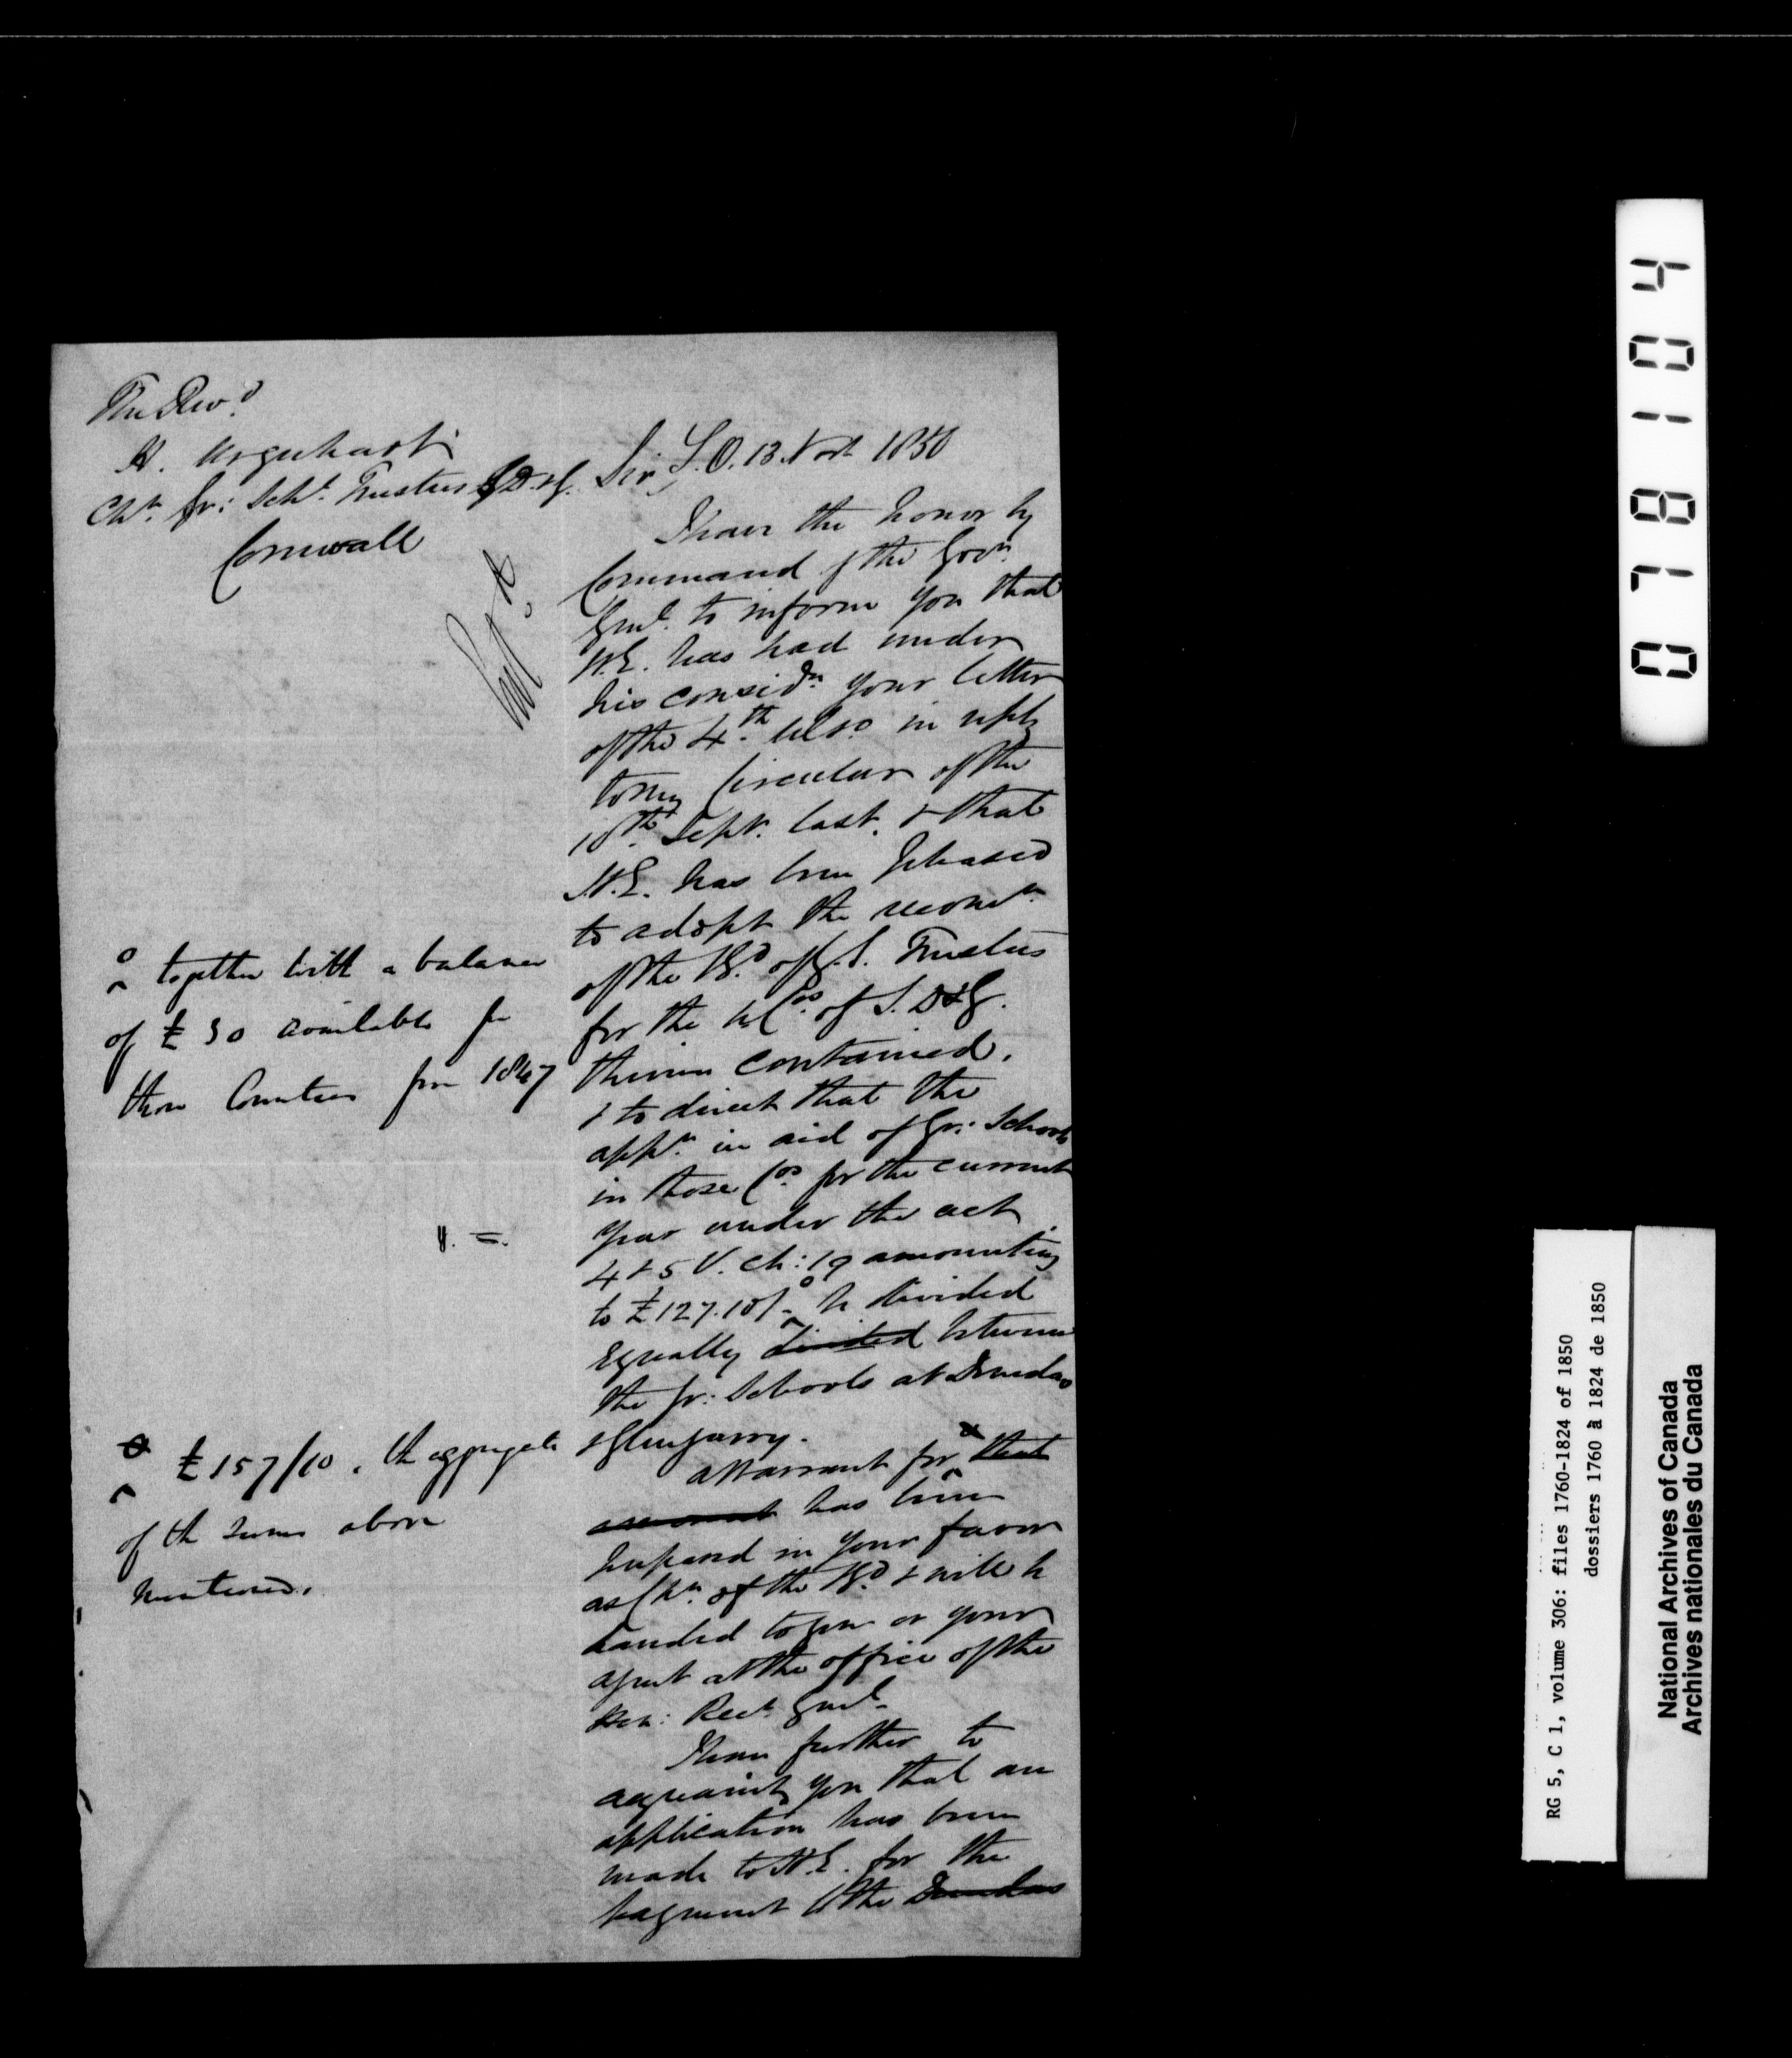 The Rev.d
H. Urquhart
Chn. Gr: Schl. Trustees S.D.&G.
Cornwall
S.O. 13 Novr 1850
Sir,
I have the honor by
Command of the Govr.
Genl. to inform you that
H.E. has had under
his considn. your letter
of the 4th. in reply
to my Circular of the
10th Sept. last. & that
H.E. has been pleased
to adopt the recomn.
of the Bd. of G.S. Trustees
for the Cos. of S.D&G.
therein contained.
& to direct that the
appn. in aid of Gr: Schools
in those Cos. for the current
year under the act
4 & 5 V. Ch: 19 amounting
to £127.10/- be divided
Equally divided between
the Gr: Schools at Dundas
& Glengarry.
a Warrant for that
amount has been
prepared in your favor
as Chn. of the Bd. & will be
handed to you or your
agent at the office of the
Hon: Recr. Genl.
I have further to
acquaint you that an
application has been
made to H.E. for the
payment the Dundas
o together with a balance
of £30 available for
those Counties for 1847
£157/10. the aggregate
of the sums above
mentioned.
078104
RG 5, C 1, volume 306: files 1760-1824 of 1850
dossiers 1760 à 1824 de 1850
National Archives of Canada
Archives nationales du Canada